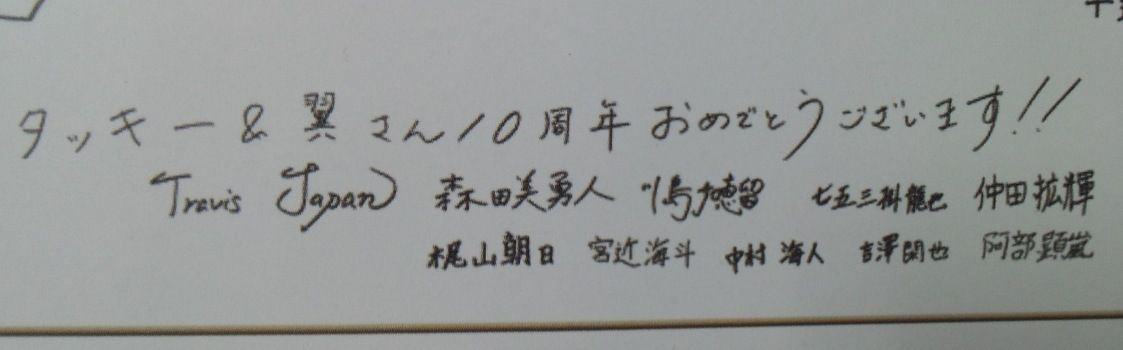 タッキー&翼さん10周年おめでとうございます!!
Travis Japan 森田美勇人 川島如恵留 七五三掛龍也 仲田拡輝
梶山朝日 宮近海斗 中村海人 吉澤閑也 阿部顕嵐